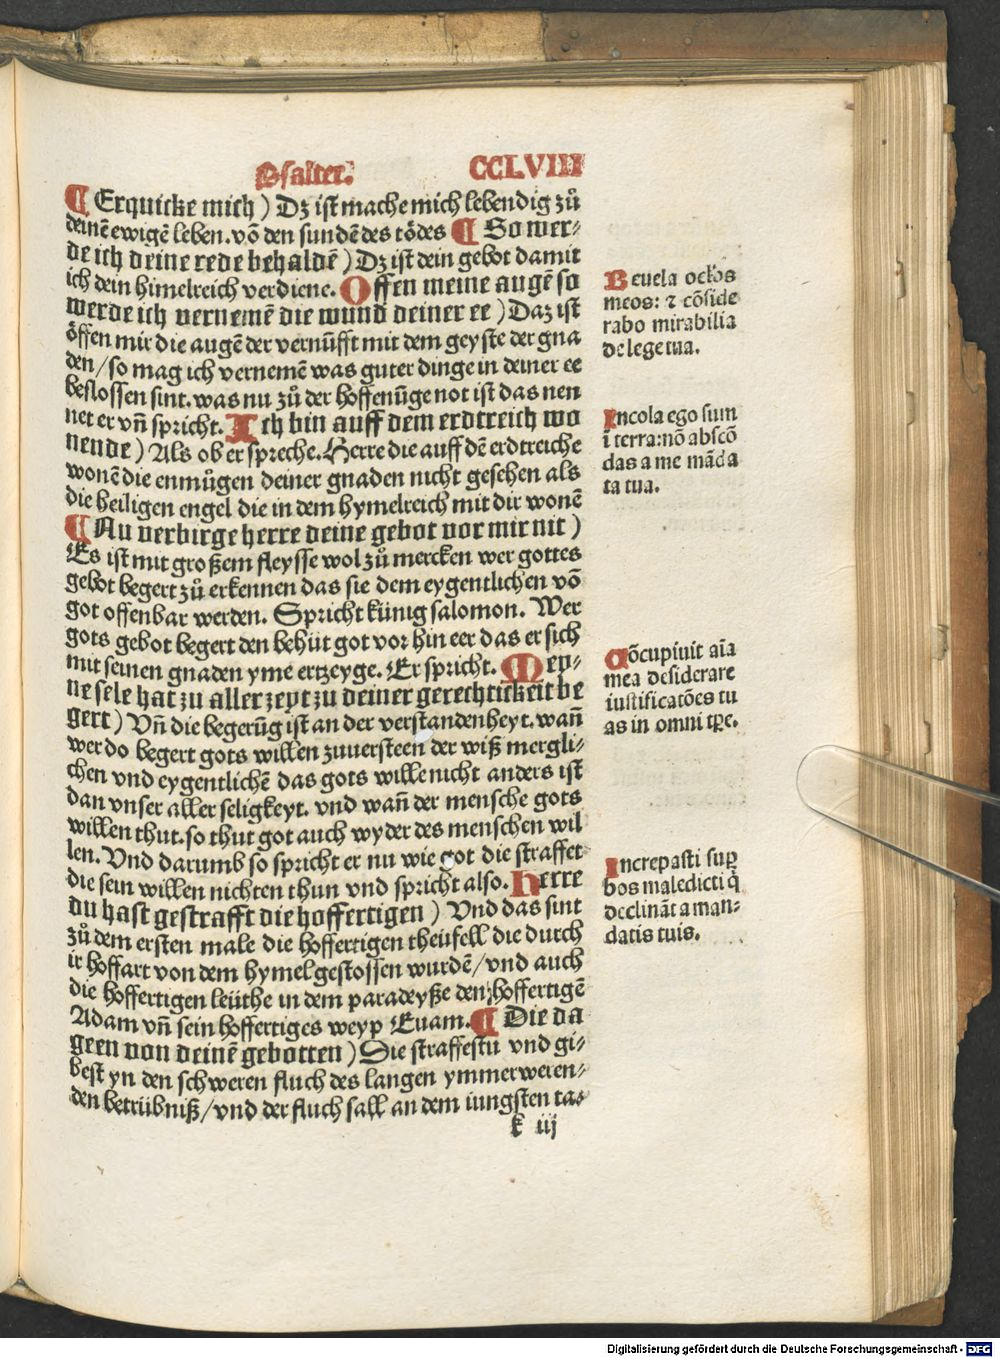 Psalter. CCLVIII
¶ Erquicke mich) Dz ist mache mich lebendig zů
deinē ewigē leben. võ den sundē des tődes ¶ So wer-
de ich deine rede behaldē) Dz ist dein gebot damit
ich dein himelreich verdiene. Offen meine augē so
werde ich vernemē die wund deiner ee) Daz ist
őffen mir die augē der vernūfft mit dem geyste der gna
den/ so mag ich vernemē was guter dinge in deiner ee
beslossen sint. was nu zů der hoffenūge not ist das nen
net er vñ spricht. Ich bin auff dem erdtreich wo
nende) Als ob er spreche. Herre die auff dē erdtreiche
wonē die enmůgen deiner gnaden nicht gesehen als
die heiligen engel die in dem hymelreich mit dir wonē
¶ Nu verbirge herre deine gebot vor mir nit)
Es ist mit großem fleysse wol zů mercken wer gottes
gebot begert zů erkennen das sie dem eygentlichen võ
got offenbar werden. Spricht künig salomon. Wer
gots gebot begert den behüt got vor hin eer das er sich
mit seinen gnaden yme ertzeyge. Er spricht. Mey-
ne sele hat zu aller zeyt zu deiner gerechtickeit be
gert) Vñ die begerūg ist an der verstandenheyt. wañ
wer do begert gots willen zuuersteen der wiß mergli-
chen vnd eygentlichē das gots wille nicht anders ist
dan vnser aller seligkeyt. vnd wañ der mensche gots
willen thut. so thut got auch wyder des menschen wil
len. Vnd darumb so spricht er nu wie got die straffet
die sein willen nichten thun vnd spricht also. Herre
du hast gestrafft die hoffertigen) Vnd das sint
zů dem ersten male die hoffertigen theüfell die durch
ir hoffart von dem hymel gestossen wurdē/ vnd auch
die hoffertigen leüthe in dem paradeyße den hoffertigē
Adam vñ sein hoffertiges weyp Euam. ¶ Die da
geen von deinē gebotten) Die straffestu vnd gi-
best yn den schweren fluch des langen ymmerweren-
den betrübniß/ vnd der fluch sall an dem iungsten ta-
k iij
Reuela oclōs
meos: ⁊ cōside
rabo mirabilia
de lege tua.
Incola ego sum
ī terra: nō abscō
das a me mādā
ta tua.
Cōcupiuit aīa
mea desiderare
iustificatōes tu
as in omni tꝑe.
Increpasti suꝑ
bos maledicti q̄
declināt a man-
datis tuis.
Digitalisierung gefördert durch die Deutsche Forschungsgemeinschaft - DFG